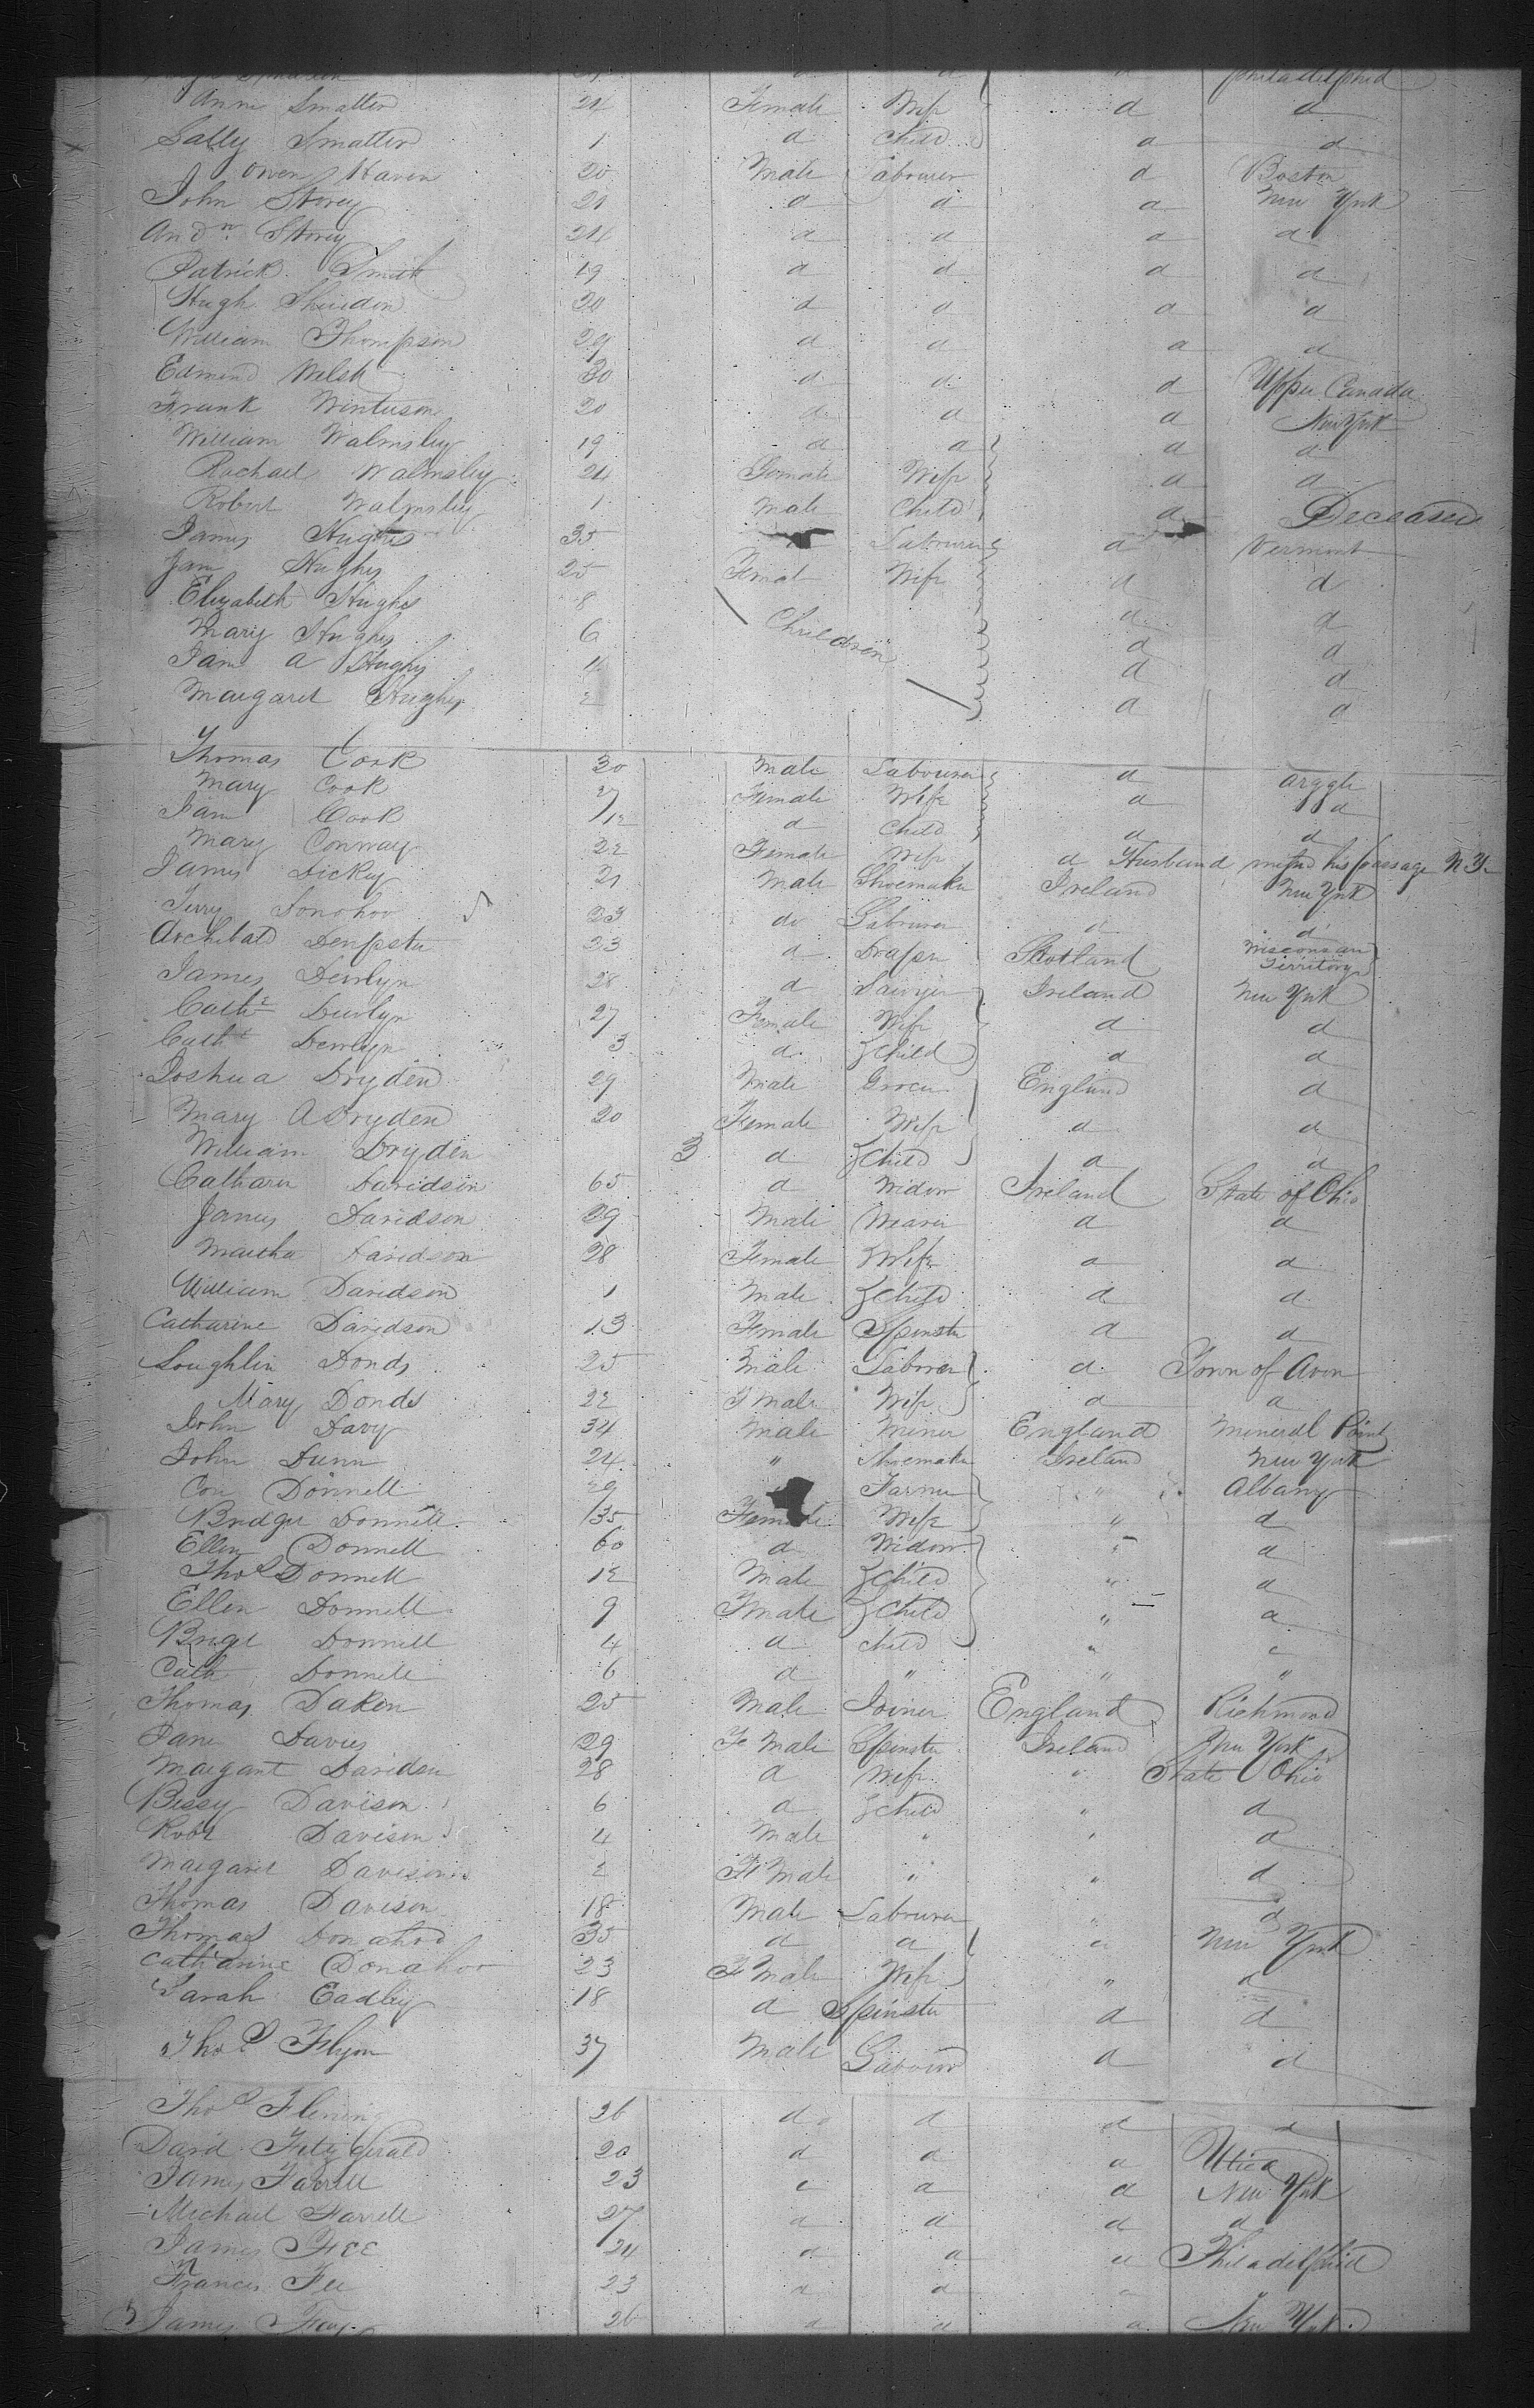 Philadelphia
Ann Smatter 24 Female Wife d d
Sally Smatter 1 d Child d d
Owen Haven 20 Male Labourer d Boston
John Storey 21 d d d New York
Andw. Storey 24 d d d d
Patrick Smith 19 d d d d
Hugh Sheridan 20 d d d d
William Thompson 29 d d d d
Edmend Welsh 30 d d d Upper Canada
Frank 20 d d d New York
William Walmsley 19 d d d d
Rachael Walmsley 24 Female Wife d d
Robert Walmsley 1 Male Child d Deceased
James Hughes 35 Labourer d Vermont
Jane Hughes 25 Femal Wife d d
Elizabeth Hughes 8 d d
Mary Hughes 6 Children d d
Jane A Hughes 4 d d
Margaret Hughes 2 d d
Thomas Cook 30 Male Labourer d Argyle
Mary Cook 27 Female Wife d d
Jane Cook /12 d Child d d
Mary Conway 22 Female Wife d Husband his passage N Y.
James Dickey 21 Male Shoemaker Ireland New York
Terry Donohoo 23 do Labourer d d
Archibald Dempster 23 d Draper Scotland Wisconsian Territory
James Devlyn 28 d Sawyer Ireland New York
Cathe Devlyn 27 Female Wife d d
Cathe Devlyn 3 d Child d d
Joshua Dryden 29 Male Grocer England d
Mary A Dryden 20 Female Wife d d
William Dryden 3 d Child d d
Catharin Davidson 65 d Widow Ireland State of Ohio
James Davidson 29 Male Weaver d d
Martha Davidson 28 Female Wife d d
William Davidson 1 Male Child d d
Catharine Davidson 13 Female Spinster d d
Loughlin Donds 25 Male Laborer d Town of Avon
Mary Donds 22 Fmale Wife d d
John Davy 34 Male Miner England Mineral Point
John Dunn 24 " Shoemaker Ireland New York
Con Donnell 29 Farmer " Albany
Bridget Donnell 35 Female Wife " d
Ellen Donnell 60 d Widow " d
Thos Donnell 12 Male Child " d
Ellen Donnell 9 Fmale Child " d
Brigt Donnell 4 d child "
Cath Donnell 6 d " " "
Thomas Daken 25 Male Joiner England Richmond
Jane Davies 29 Fe Male Spinster Ireland New York
Margaret Davidson 28 d Wife " State Ohio
Bessy Davison 6 d Child " d
Robt Davison 4 Male " " d
Margaret Davison 2 Fe Male " " d
Thomas Davison 18 Male Labourer " d
Thomas Donahoo 35 d d " New York
Catharine Donahoo 23 Fe Male Wife " d
Sarah Eadley 18 d Spinster d d
Thos Flynn 37 Male Labourer d d
Thos Fleming 26 do d d d
David Fitzgerald 20 d d d Utica
James Farrell 23 d d New York
Michael Farrell 27 d d d d
James Fee 24 d d d Philadelphia
Francis Fee 23 d d "
James 26 d d d New York.